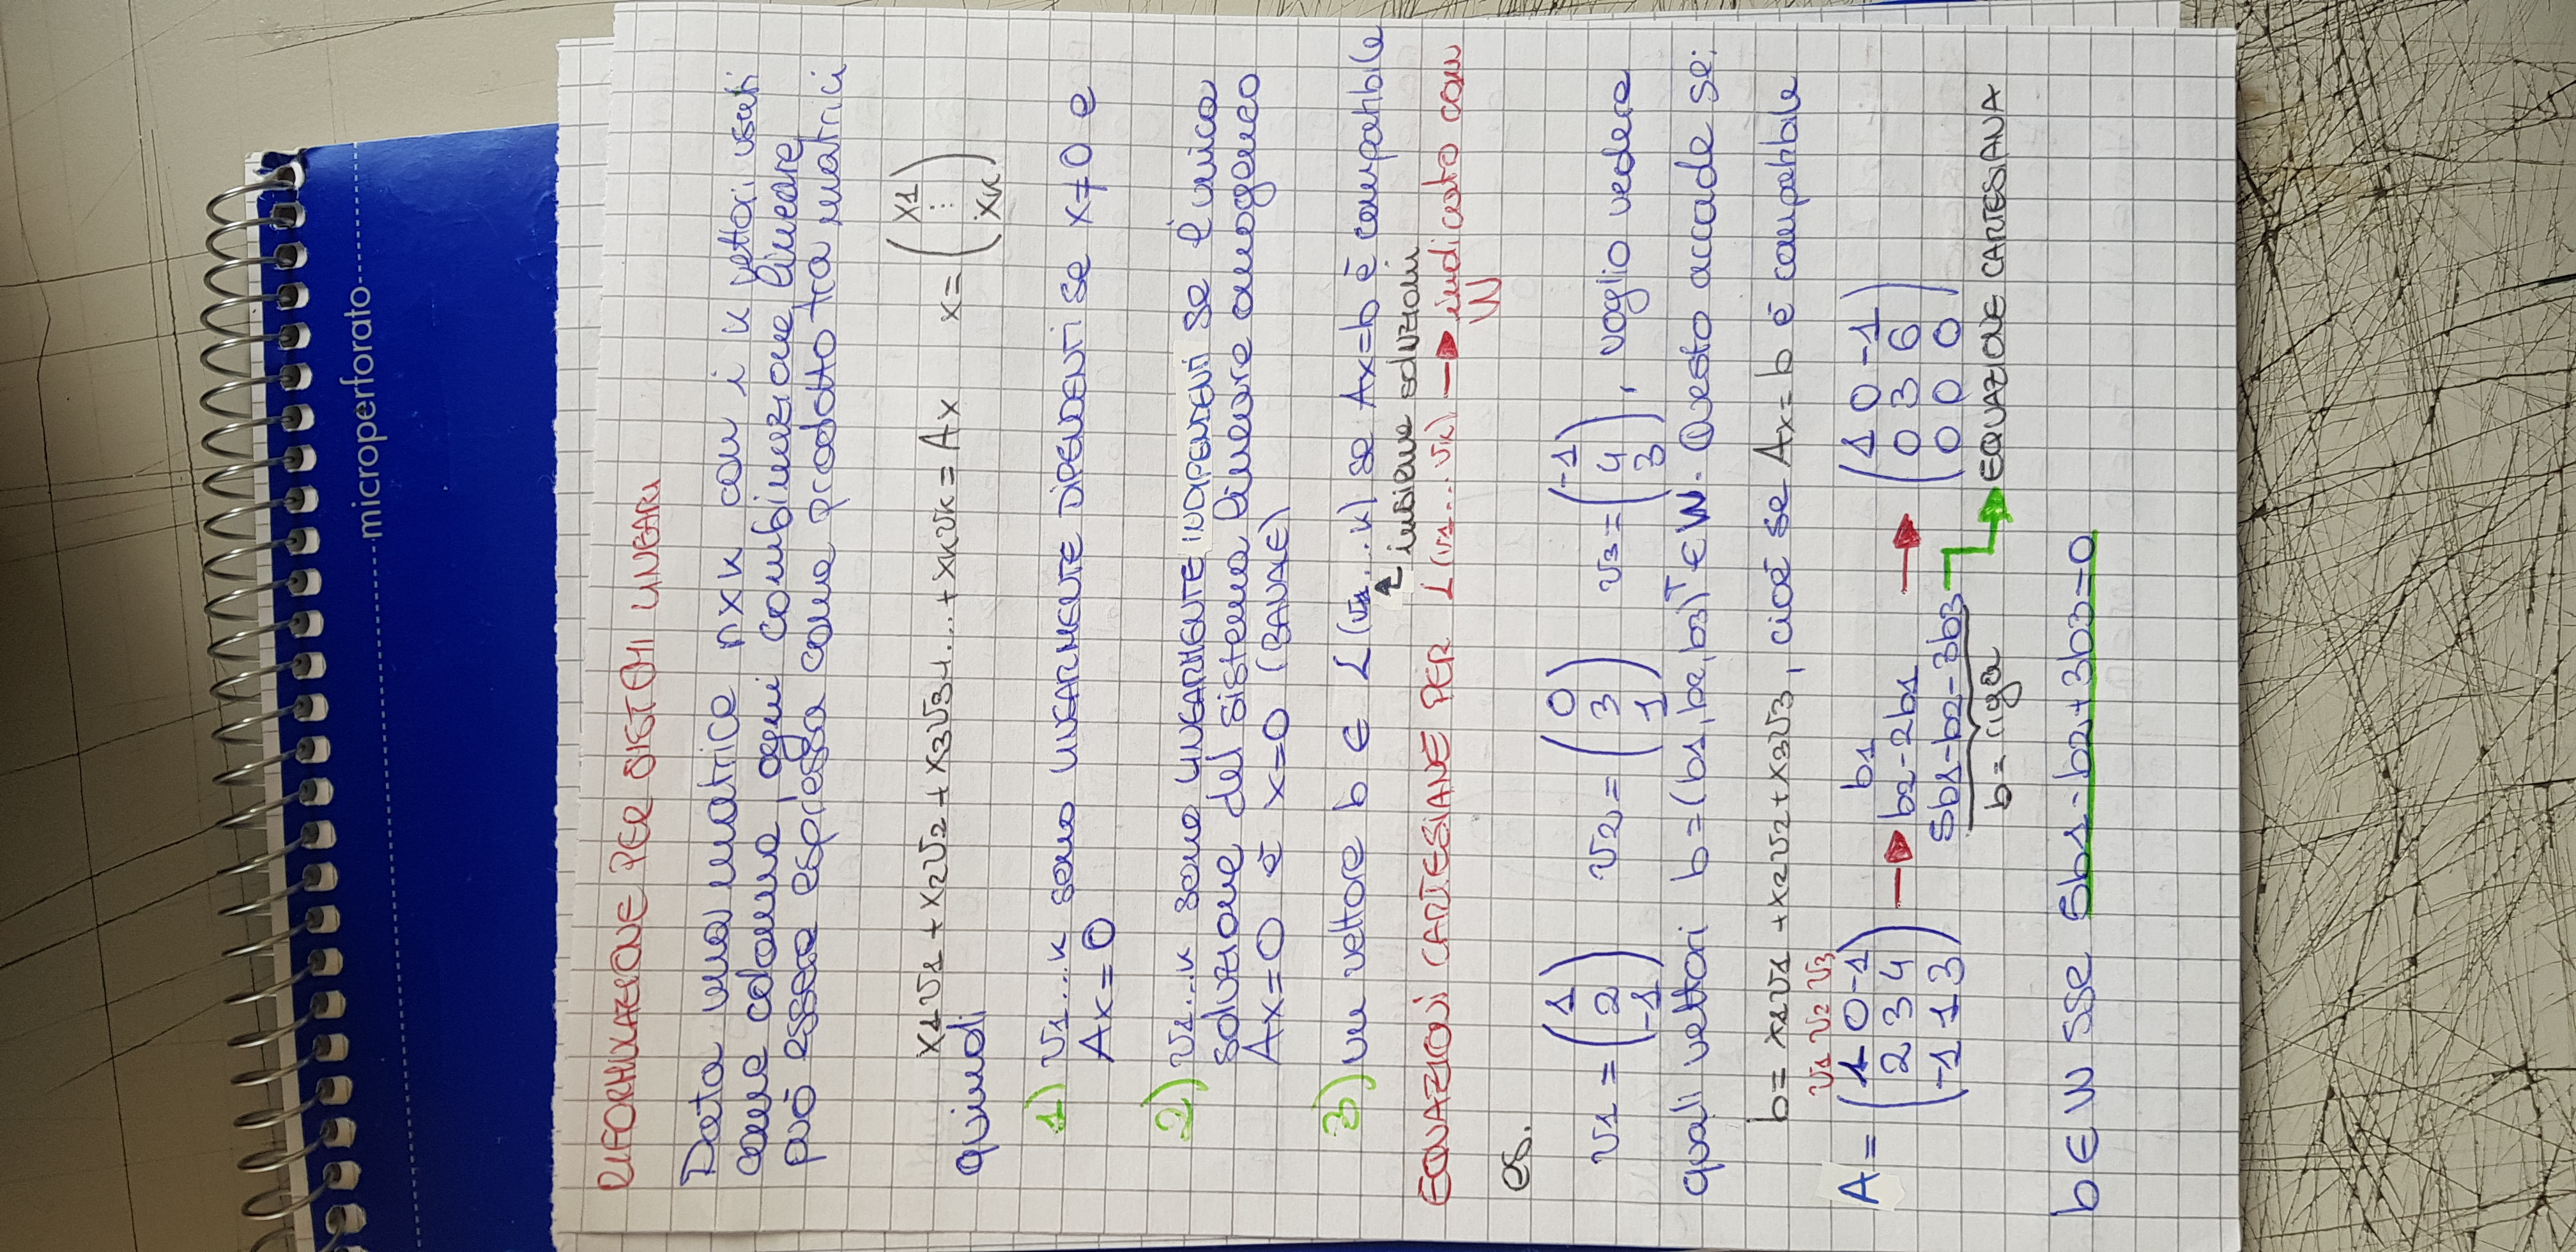 microperforato
RIFORMULAZIONE PER SISTEMI LINEARI
Data una matrice nxk con i k vettori usati
come colonna, ogni combinazione lineare
può essere espressa come prodotto tra matrici
x1v1 + x2v2 + x3v3+...+xkvk = Ax x = (x1 ⋮ xk)
quindi
1) v1...k sono LINEARMENTE DIPENDENTI se x≠0 e
Ax=0
2) v1...k sono LINEARMENTE INDIPENDENTI se l'unica
soluzione del sistema lineare omogeneo
Ax=0 è x=0 (BANALE)
3) un vettore b ∈ L(v1...k) se Ax=b è compatibile
insieme soluzioni
EQUAZIONI CARTESIANE PER L(v1...vk) → indicato con
W
es.
v1 = (1 2 -1) v2 = (0 3 1) v3 = (-1 4 3), voglio vedere
quali vettori b = (b1, b2, b3)ᵀ ∈ W. Questo accade se:
b = x1v1 + x2v2 + x3v3, cioè se Ax = b è compatibile
v1 v2 v3
A = (1 0 -1 b1 (1 0 -1
2 3 4 → b2-2b1 → 0 3 6
-1 1 3) 5b1-b2-3b3 0 0 0)
b = riga → EQUAZIONE CARTESIANA
b ∈ W sse 5b1-b2+3b3=0